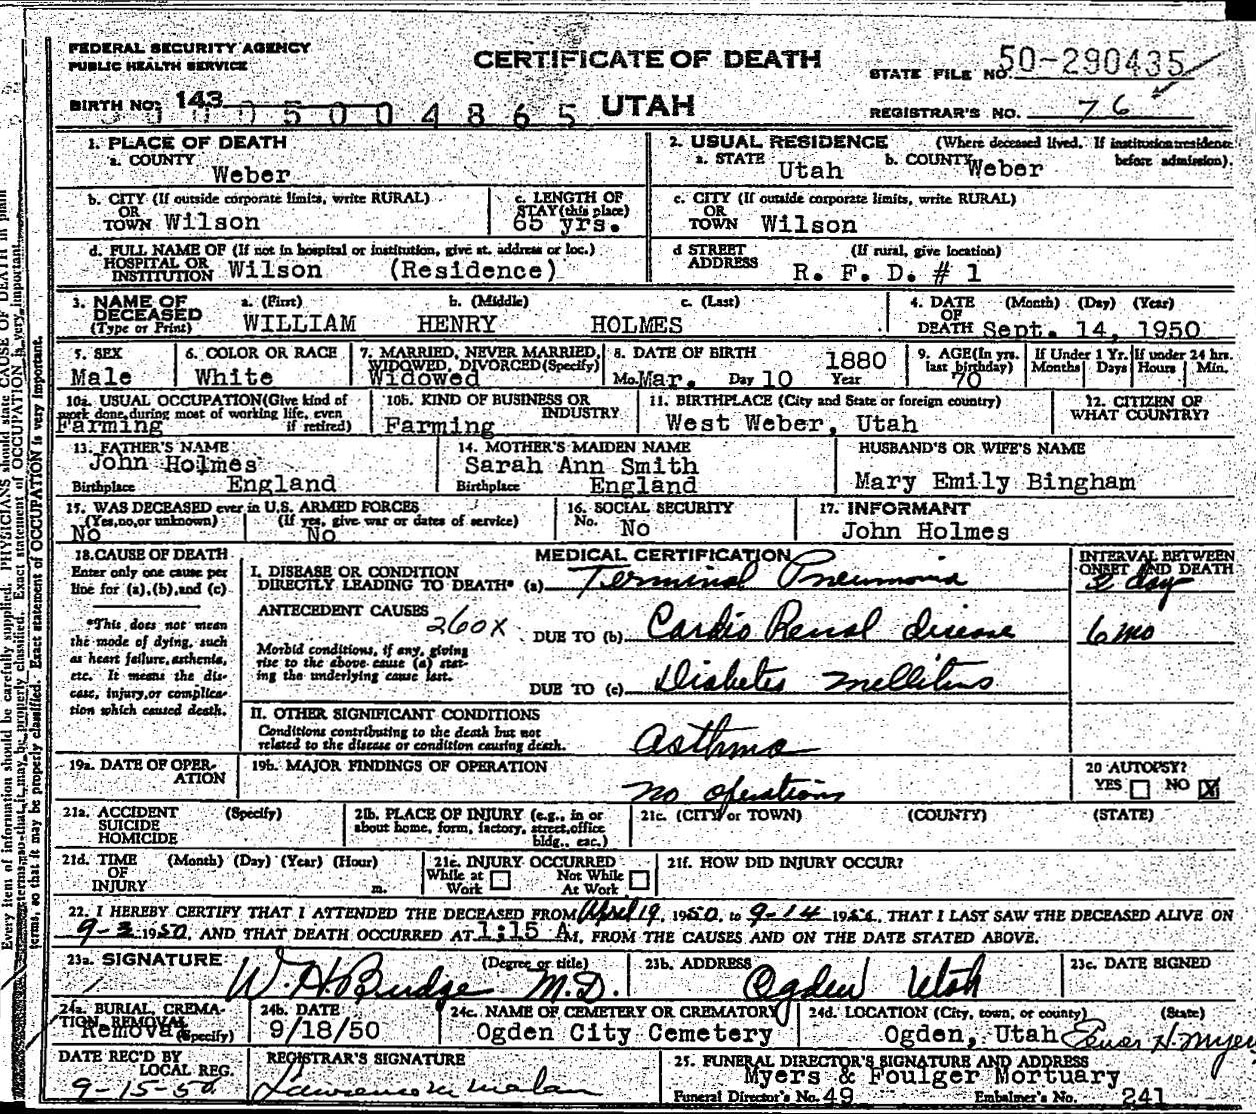 FEDERAL SECURITY AGENCY
PUBLIC HEALTH SERVICE
CERTIFICATE OF DEATH
STATE FILE NO. 50-290435
BIRTH NO. 143
500 4865
UTAH
REGISTRAR'S NO. 76
1. PLACE OF DEATH
a. COUNTY
Weber
2. USUAL RESIDENCE (Where deceased lived. If institution: residence before admission).
a. STATE Utah b. COUNTY Weber
b. CITY (If outside corporate limits, write RURAL)
OR
TOWN Wilson
c. LENGTH OF
STAY (this place)
65 yrs.
c. CITY (If outside corporate limits, write RURAL)
OR
TOWN Wilson
d. FULL NAME OF (If not in hospital or institution, give st. address or loc.)
HOSPITAL OR
INSTITUTION Wilson (Residence)
d STREET (If rural, give location)
ADDRESS R. F. D. # 1
3. NAME OF DECEASED (Type or Print)
a. (First) b. (Middle) c. (Last)
WILLIAM HENRY HOLMES
4. DATE OF DEATH (Month) (Day) (Year)
Sept. 14, 1950
5. SEX
Male
6. COLOR OR RACE
White
7. MARRIED, NEVER MARRIED,
WIDOWED, DIVORCED (Specify)
Widowed
8. DATE OF BIRTH 1880
Mo. Mar. Day 10 Year
9. AGE (In yrs.
last birthday)
70
If Under 1 Yr.
Months Days
If under 24 hrs.
Hours Min.
10a. USUAL OCCUPATION (Give kind of
work done, during most of working life, even
if retired)
Farming
10b. KIND OF BUSINESS OR
INDUSTRY
Farming
11. BIRTHPLACE (City and State or foreign country)
West Weber, Utah
12. CITIZEN OF
WHAT COUNTRY?
13. FATHER'S NAME
John Holmes
Birthplace England
14. MOTHER'S MAIDEN NAME
Sarah Ann Smith
Birthplace England
HUSBAND'S OR WIFE'S NAME
Mary Emily Bingham
15. WAS DECEASED ever in U.S. ARMED FORCES
(Yes, no, or unknown) (If yes, give war or dates of service)
No No
16. SOCIAL SECURITY
No. No
17. INFORMANT
John Holmes
18. CAUSE OF DEATH
Enter only one cause per
line for (a), (b), and (c)
*This does not mean
the mode of dying, such
as heart failure, asthenia,
etc. It means the dis-
ease, injury, or complica-
tion which caused death.
MEDICAL CERTIFICATION
INTERVAL BETWEEN
ONSET AND DEATH
I. DISEASE OR CONDITION
DIRECTLY LEADING TO DEATH* (a) Terminal Pneumonia 2 day
ANTECEDENT CAUSES 260X
DUE TO (b) Cardio Renal disease 6 mo
Morbid conditions, if any, giving
rise to the above cause (a) stat-
ing the underlying cause last.
DUE TO (c) Diabetes mellitus
II. OTHER SIGNIFICANT CONDITIONS
Conditions contributing to the death but not
related to the disease or condition causing death.
Asthma
19a. DATE OF OPER-
ATION
19b. MAJOR FINDINGS OF OPERATION
no operations
20 AUTOPSY?
YES NO X
21a. ACCIDENT (Specify)
SUICIDE
HOMICIDE
21b. PLACE OF INJURY (e.g., in or
about home, form, factory, street, office
bldg., etc.)
21c. (CITY or TOWN) (COUNTY) (STATE)
21d. TIME (Month) (Day) (Year) (Hour)
OF
INJURY m.
21e. INJURY OCCURRED
While at Not While
Work At Work
21f. HOW DID INJURY OCCUR?
22. I HEREBY CERTIFY THAT I ATTENDED THE DECEASED FROM April 19, 1950, to 9-14 19, THAT I LAST SAW THE DECEASED ALIVE ON
9-2 1950, AND THAT DEATH OCCURRED AT 1:15 A M, FROM THE CAUSES AND ON THE DATE STATED ABOVE.
23a. SIGNATURE (Degree or title)
W. H. Budge M.D.
23b. ADDRESS
Ogden Utah
23c. DATE SIGNED
24a. BURIAL, CREMA-
TION, REMOVAL
(Specify)
Removal
24b. DATE
9/18/50
24c. NAME OF CEMETERY OR CREMATORY
Ogden City Cemetery
24d. LOCATION (City, town, or county) (State)
Ogden, Utah
H. Myers
DATE REC'D BY
LOCAL REG.
9-15-50
REGISTRAR'S SIGNATURE
Lawrence M Malan
25. FUNERAL DIRECTOR'S SIGNATURE AND ADDRESS
Myers & Foulger Mortuary
Funeral Director's No. 49 Embalmer's No. 241
Every item of information should be carefully supplied. PHYSICIANS should state CAUSE OF DEATH in plain
terms, so that it may be properly classified. Exact statement of OCCUPATION is very important.